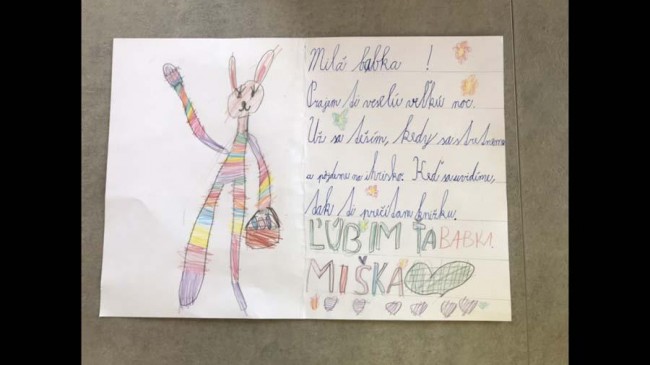 Milá babka !
Prajem ti veselú veľkú noc.
Už sa teším, kedy sa stretneme
a pôjdeme na ihrisko. Keď sa uvidíme,
tak ti prečítam knižku.
ĽÚBIM ŤA BABKA
MIŠKA